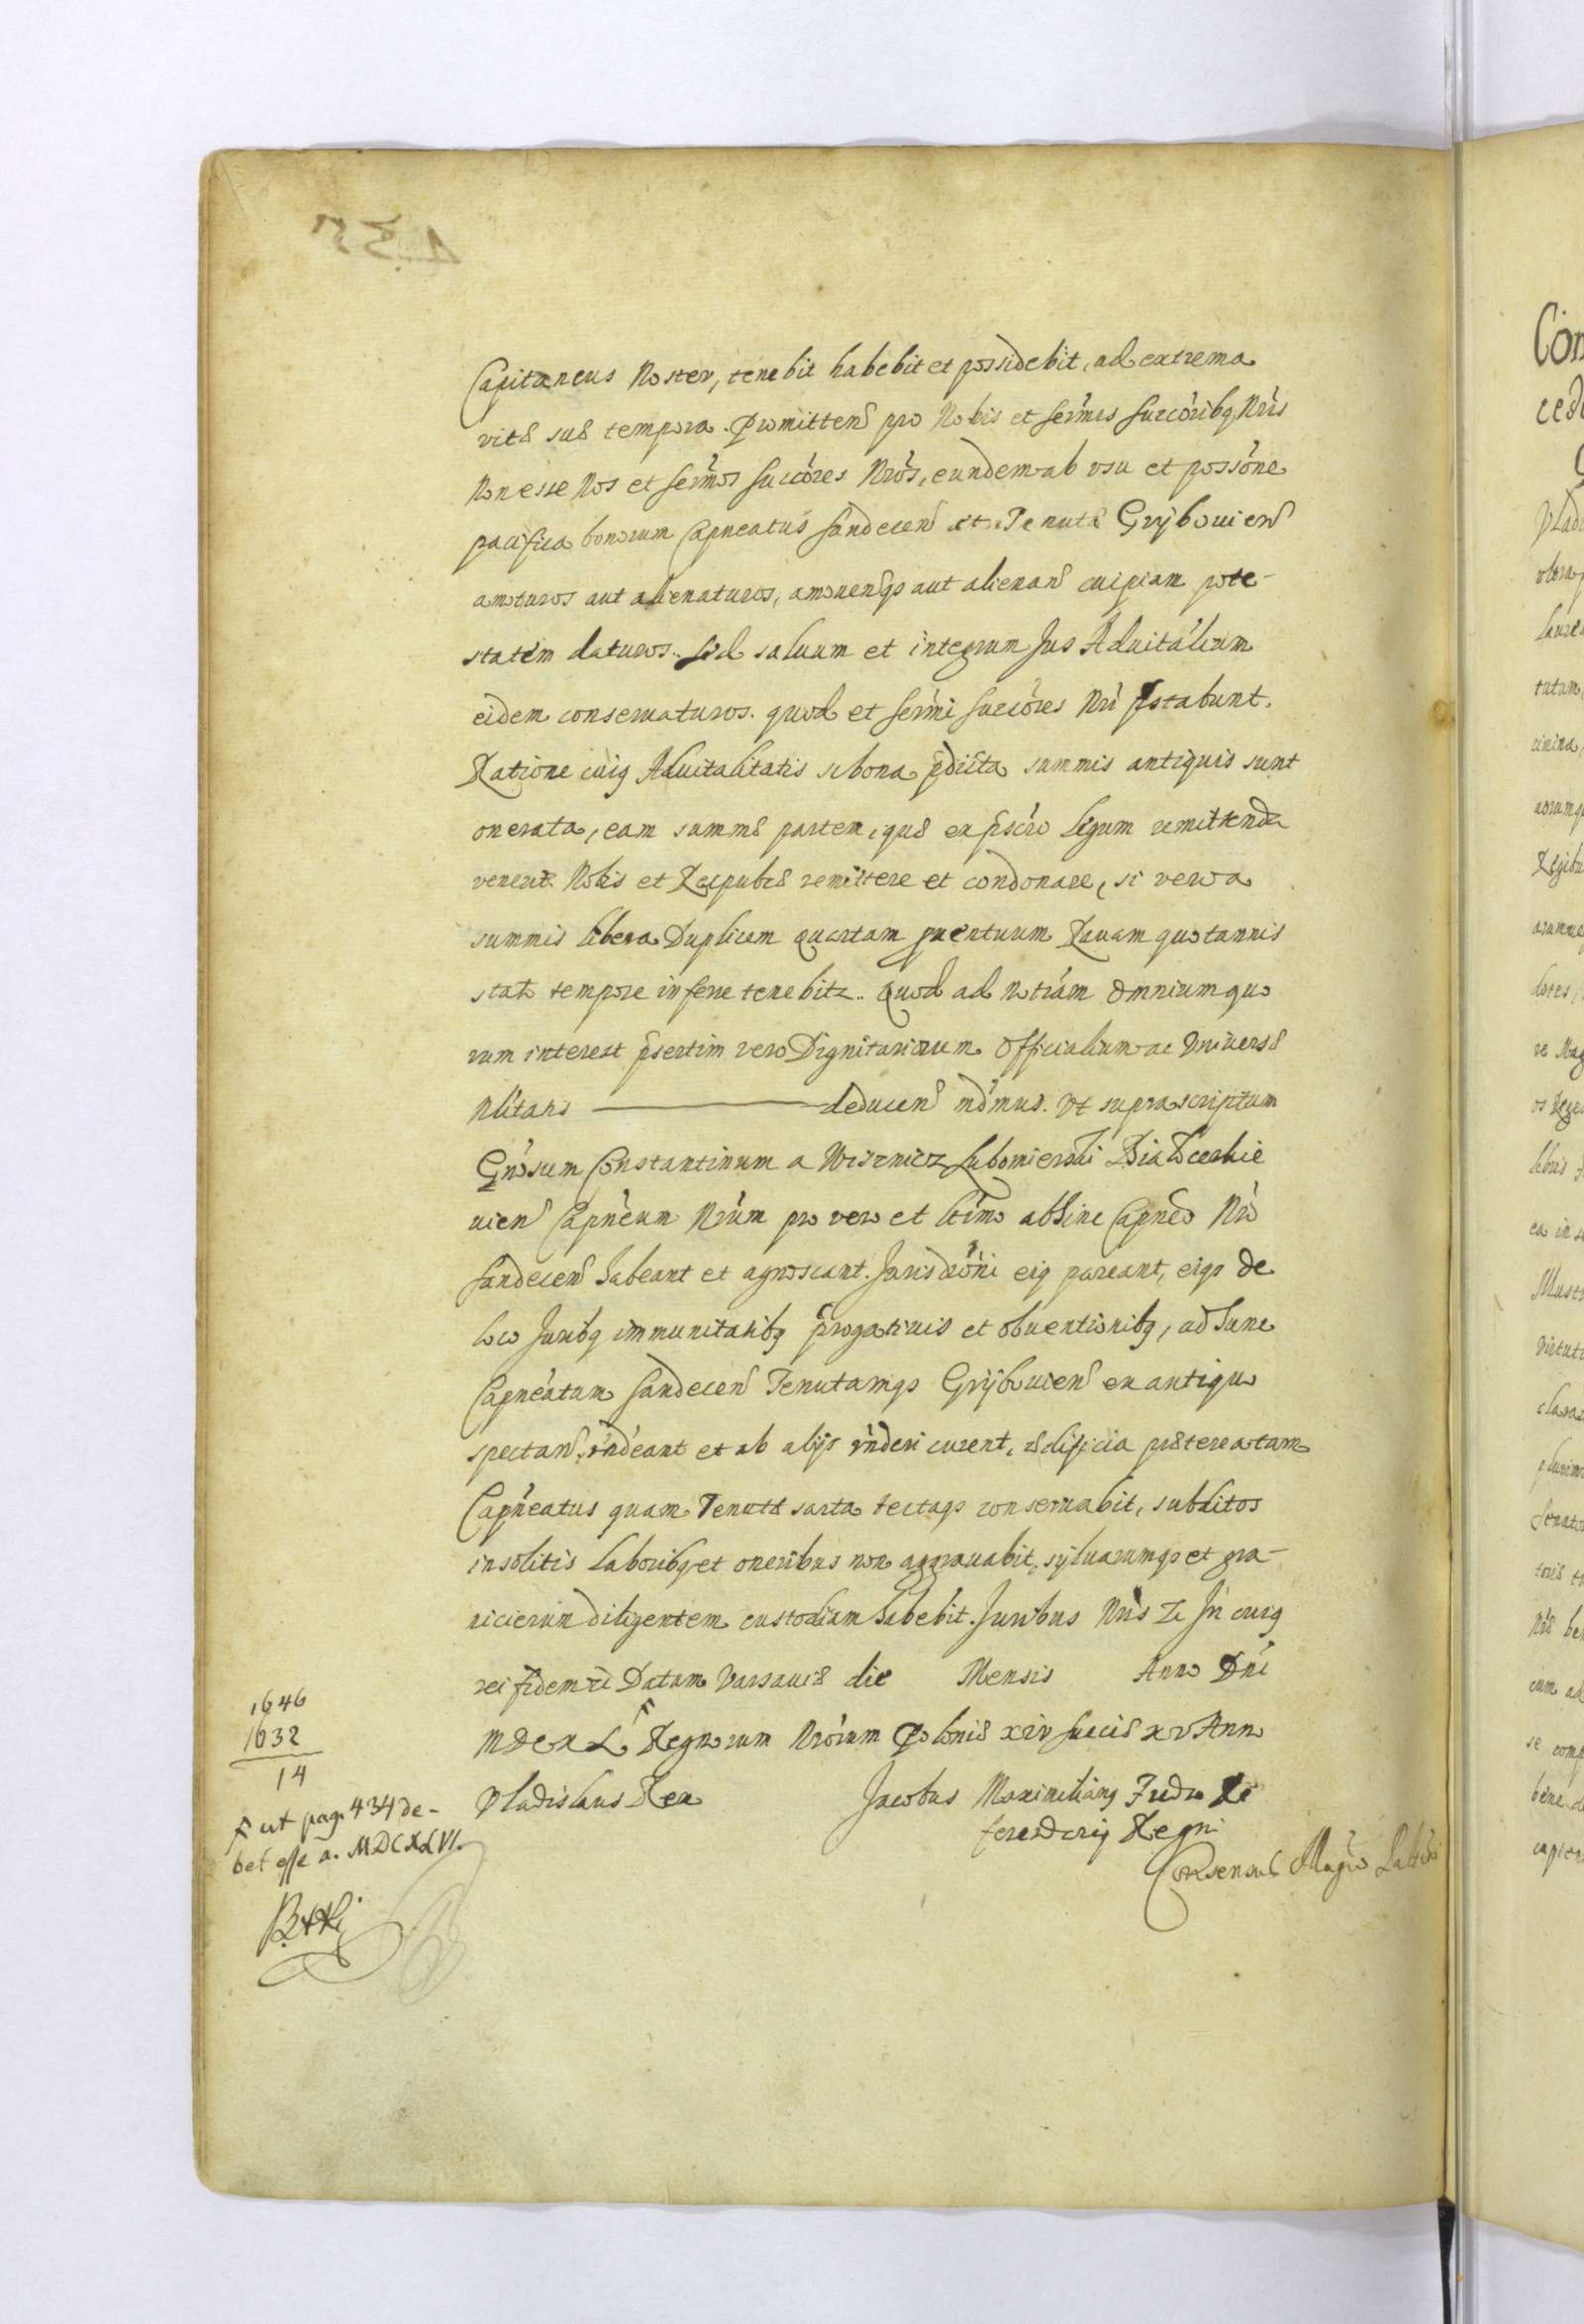 Capitaneus Noster, tenebit habebit et possidebit, ad extrema
vitæ suæ tempora. Promitten pro Nobis et sermis succoribq Nris
Non esse Nos et sermos succores Nros, eundem ab vsu et possone
pacifica bonorum Capneatus Sandecen et Tenutæ Grybouien
amoturos aut alienaturos, amouenqs aut alienan cuipiam pote-
statem daturos. Sed saluum et integrum Jus Aduitalium
eidem conseruaturos. quod et sermi succores Nri pstabunt.
Ratione cuiq Aduitalitatis si bona pdicta summis antiquis sunt
onerata, eam summæ partem, quæ ex pscro legum remittenda
venerit Nobis et Reipubcæ remittere et condonare, si vero a
summis libera Duplicem quartam puentuum Rauam quotannis
stato tempore inferre tenebitr. Quod ad notiam Omnium quo
rum interest psertim vero Dignitariorum Officialium ac Vniuersæ
Nlitatis deducen mdmus. Vt supra scriptum
Gnosum Constantinum a Wisznicz Lubomierski Białocerkie
uien Capneum Nrum pro vero et ltimo abhinc Capneo Nro
Sandecen habeant et agnoscant. Jurisdconi eiq pareant, eiqs de
loco Juribq immunitatibq progatiuis et obuentionibq, ad hunc
Capneatum Sandecen Tenutamqs Grybouien ex antiquo
spectan, rndeant et ab alijs rnderi curent, ædificia præterea tam
Capneatus quam Tenutæ sarta tectaqs conseruabit, subditos
insolitis laboribq et oneribus non aggrauabit, syluarumqs et gra-
nicierum diligentem custodiam habebit. Juribus Nris &c In cuiq
rei fidem &c Datum Varsauiæ die Mensis Anno Dni
MDCXL Regnorum Nrorum Poloniæ xiv Sueciæ xv Anno
Vladislaus Rex Jacobus Maximilianq Fredro Re
ferendariq Regni
Consensus Magco
1646
1632
14
ut pag. 434 de-
bet esse a. MDCXLVI.